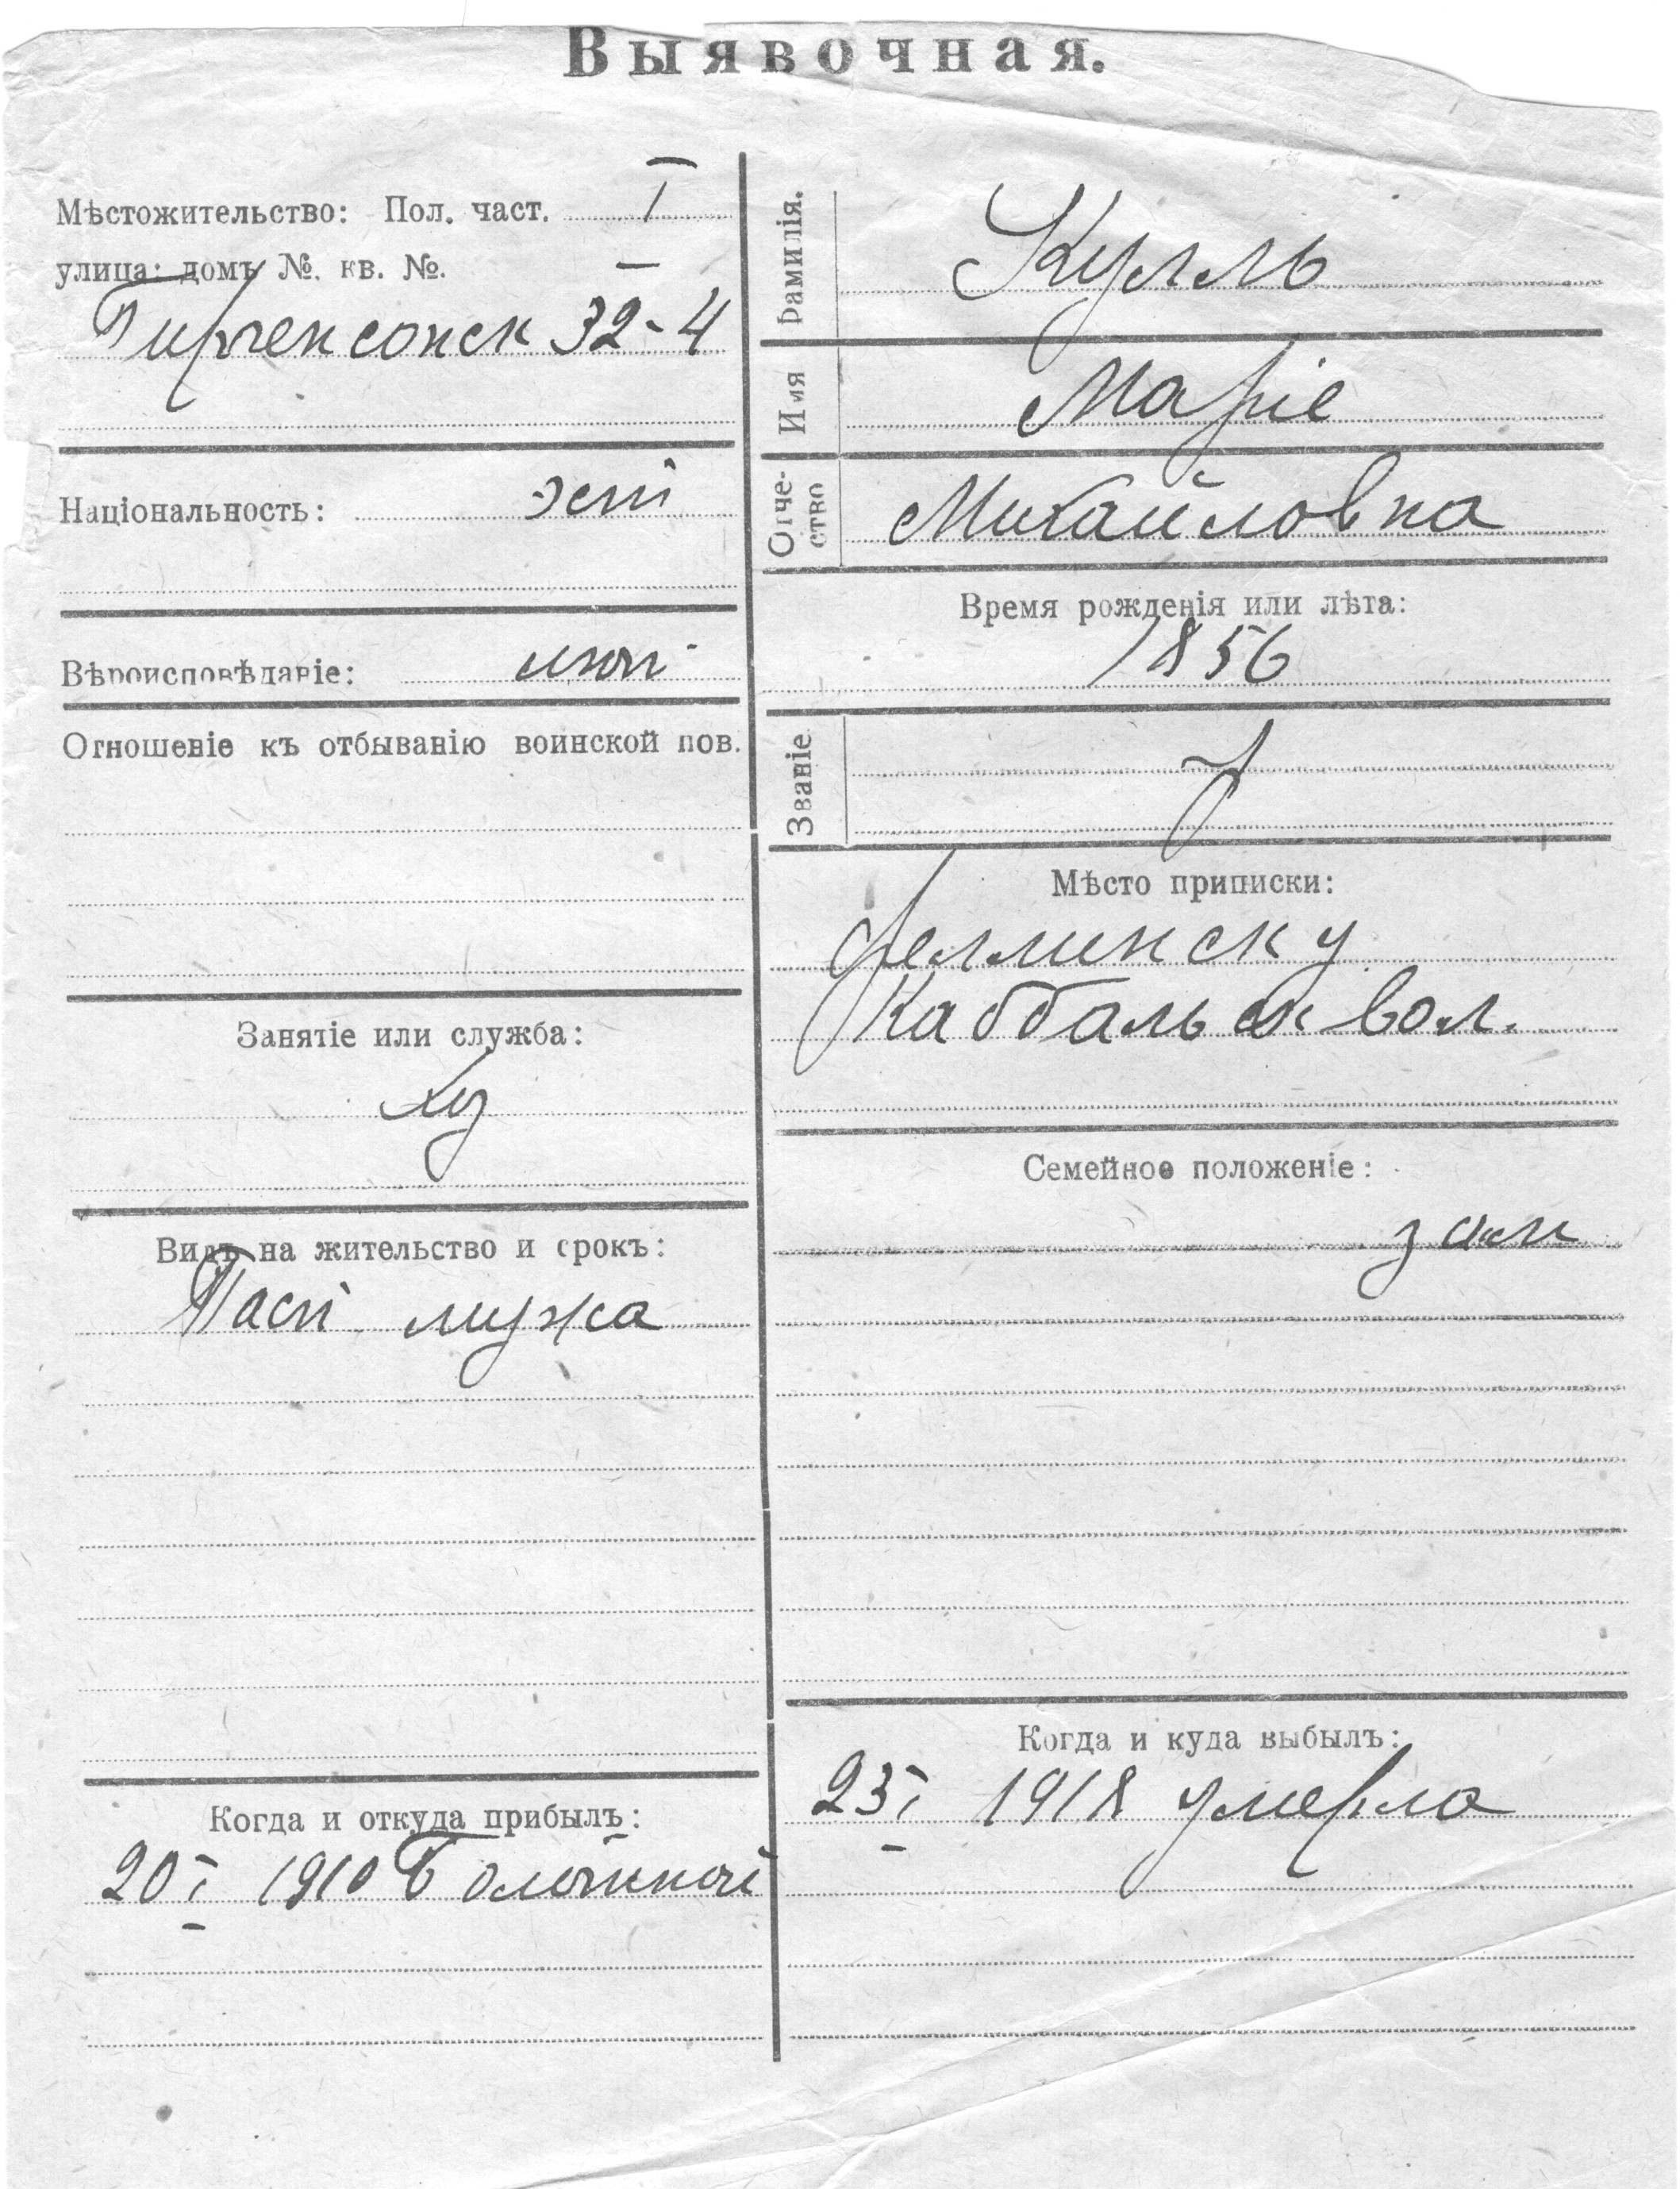 Выявочная.
Мѣстожительство: Пол. част. I
улица: домъ №. кв. №.
32-4
Національность: эст
Вѣроисповѣданіе: лют
Отношеніе къ отбыванію воинской пов.
Занятіе или служба:
хоз
Видъ на жительство и срокъ:
Пасп мужа
Когда и откуда прибылъ:
20 I 1910 Болотной
Фамилія. Кулль
Имя Маріе
Отче-
ство Михайловна
Время рожденія или лѣта:
1856
Званіе
Мѣсто приписки:
Феллинск у
Каббальск вол.
Семейное положеніе:
зам
Когда и куда выбылъ:
23 I 1918 умерла